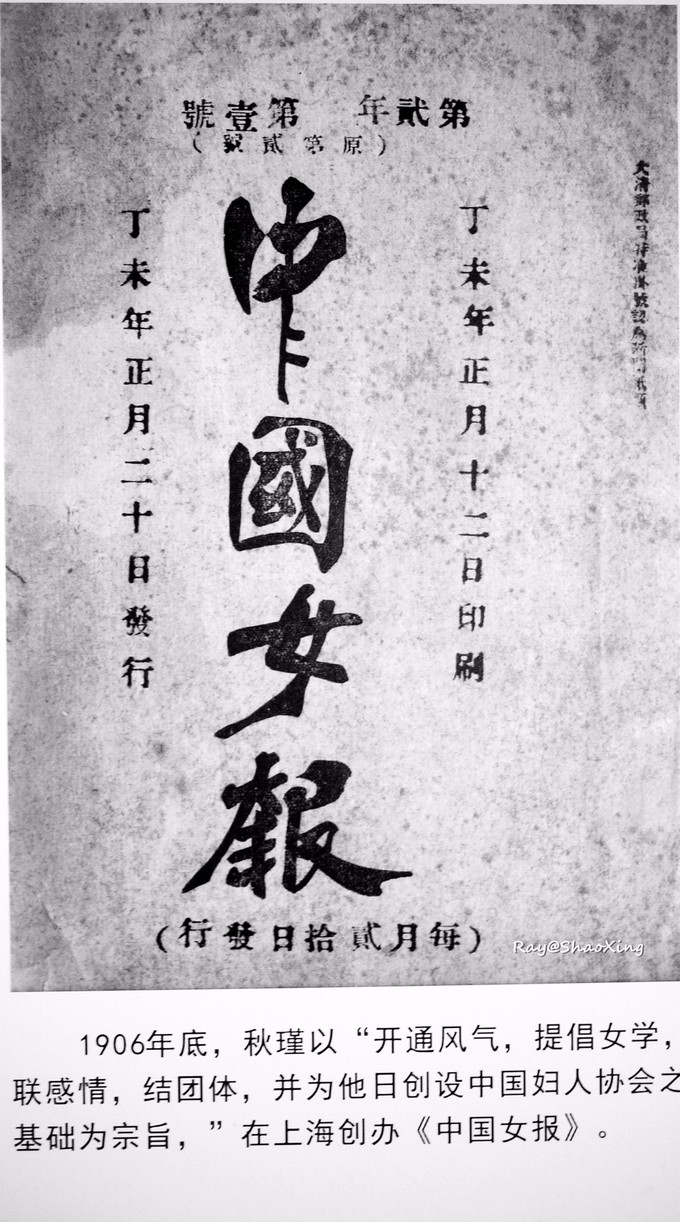 第貳年 第壹號
（原第貳號）
大清郵政局特准掛號認為新聞紙類
丁未年正月十二日印刷
中國女報
丁未年正月二十日發行
（每月貳拾日發行）
Ray@ShaoXing
1906年底，秋瑾以“开通风气，提倡女学，
联感情，结团体，并为他日创设中国妇人协会之
基础为宗旨，”在上海创办《中国女报》。